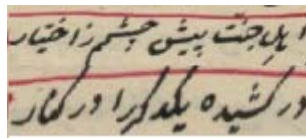 اهل جنت پیش چشم ز اختیار
در کشیده یکدگر را در کنار